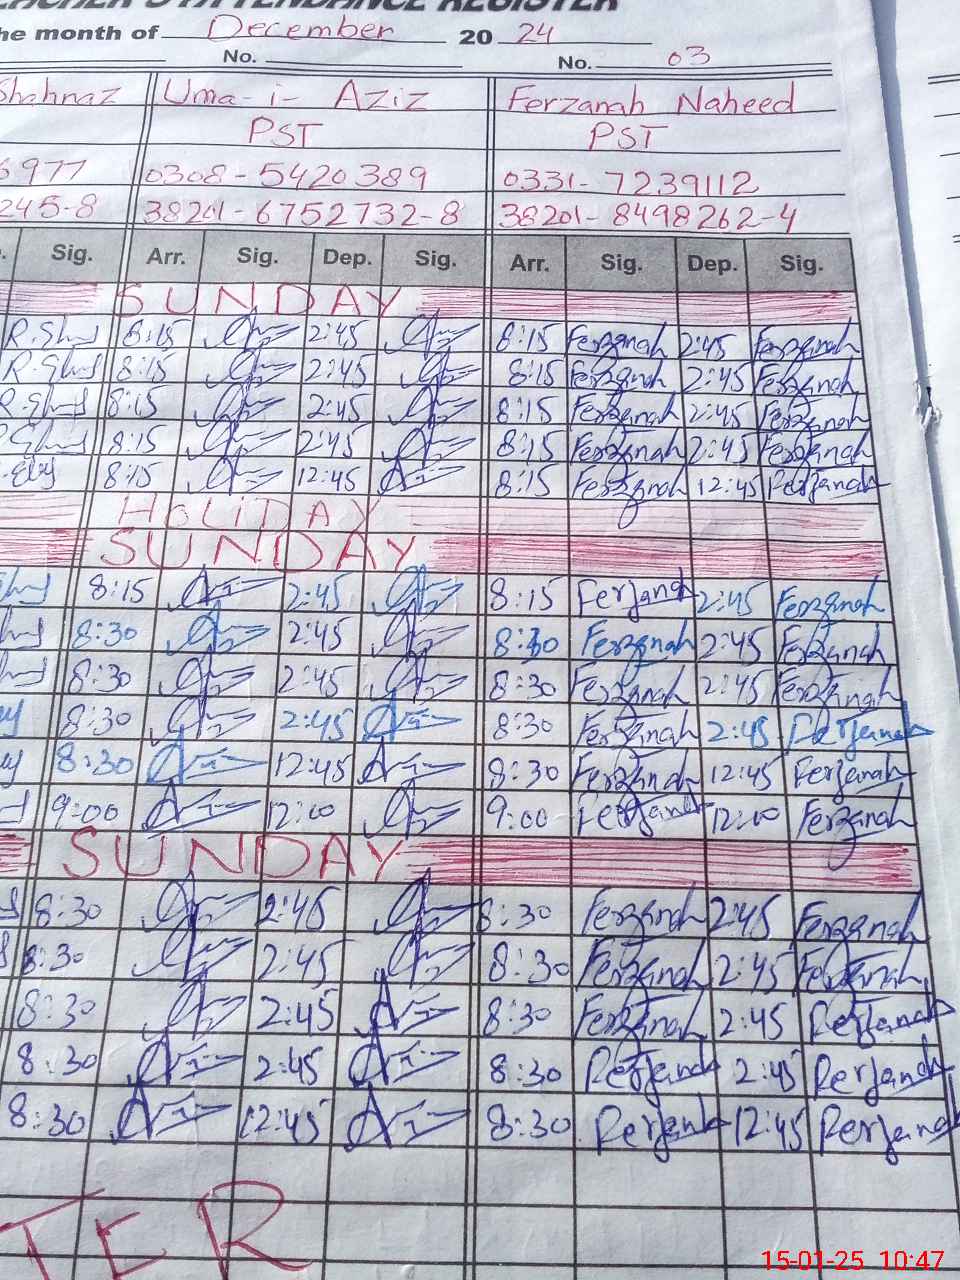 TEACHER'S ATTENDANCE REGISTER
he month of December 20 24
No. No. 03
Shahnaz Uma-i- Aziz Ferzanah Naheed
PST PST
6977 0308-5420389 0331-7239112
245-8 38201-6752732-8 38201-8498262-4
Sig. Arr. Sig. Dep. Sig. Arr. Sig. Dep. Sig.
SUNDAY
8:15 2:45 8:15 Ferzanah 2:45 Ferzanah
8:15 2:45 8:15 Ferzanah 2:45 Ferzanah
8:15 2:45 8:15 Ferzanah 2:45 Ferzanah
8:15 2:45 8:15 Ferzanah 2:45 Ferzanah
8:15 12:45 8:15 Ferzanah 12:45 Ferzanah
HOLIDAY
SUNDAY
8:15 2:45 8:15 Ferzanah 2:45 Ferzanah
8:30 2:45 8:30 Ferzanah 2:45 Ferzanah
8:30 2:45 8:30 Ferzanah 2:45 Ferzanah
8:30 2:45 8:30 Ferzanah 2:45 Ferzanah
8:30 12:45 8:30 Ferzanah 12:45 Ferzanah
9:00 12:00 9:00 Ferzanah 12:00 Ferzanah
SUNDAY
8:30 2:45 8:30 Ferzanah 2:45 Ferzanah
8:30 2:45 8:30 Ferzanah 2:45 Ferzanah
8:30 2:45 8:30 Ferzanah 2:45 Ferzanah
8:30 2:45 8:30 Ferzanah 2:45 Ferzanah
8:30 12:45 8:30 Ferzanah 12:45 Ferzanah
TER
15-01-25 10:47